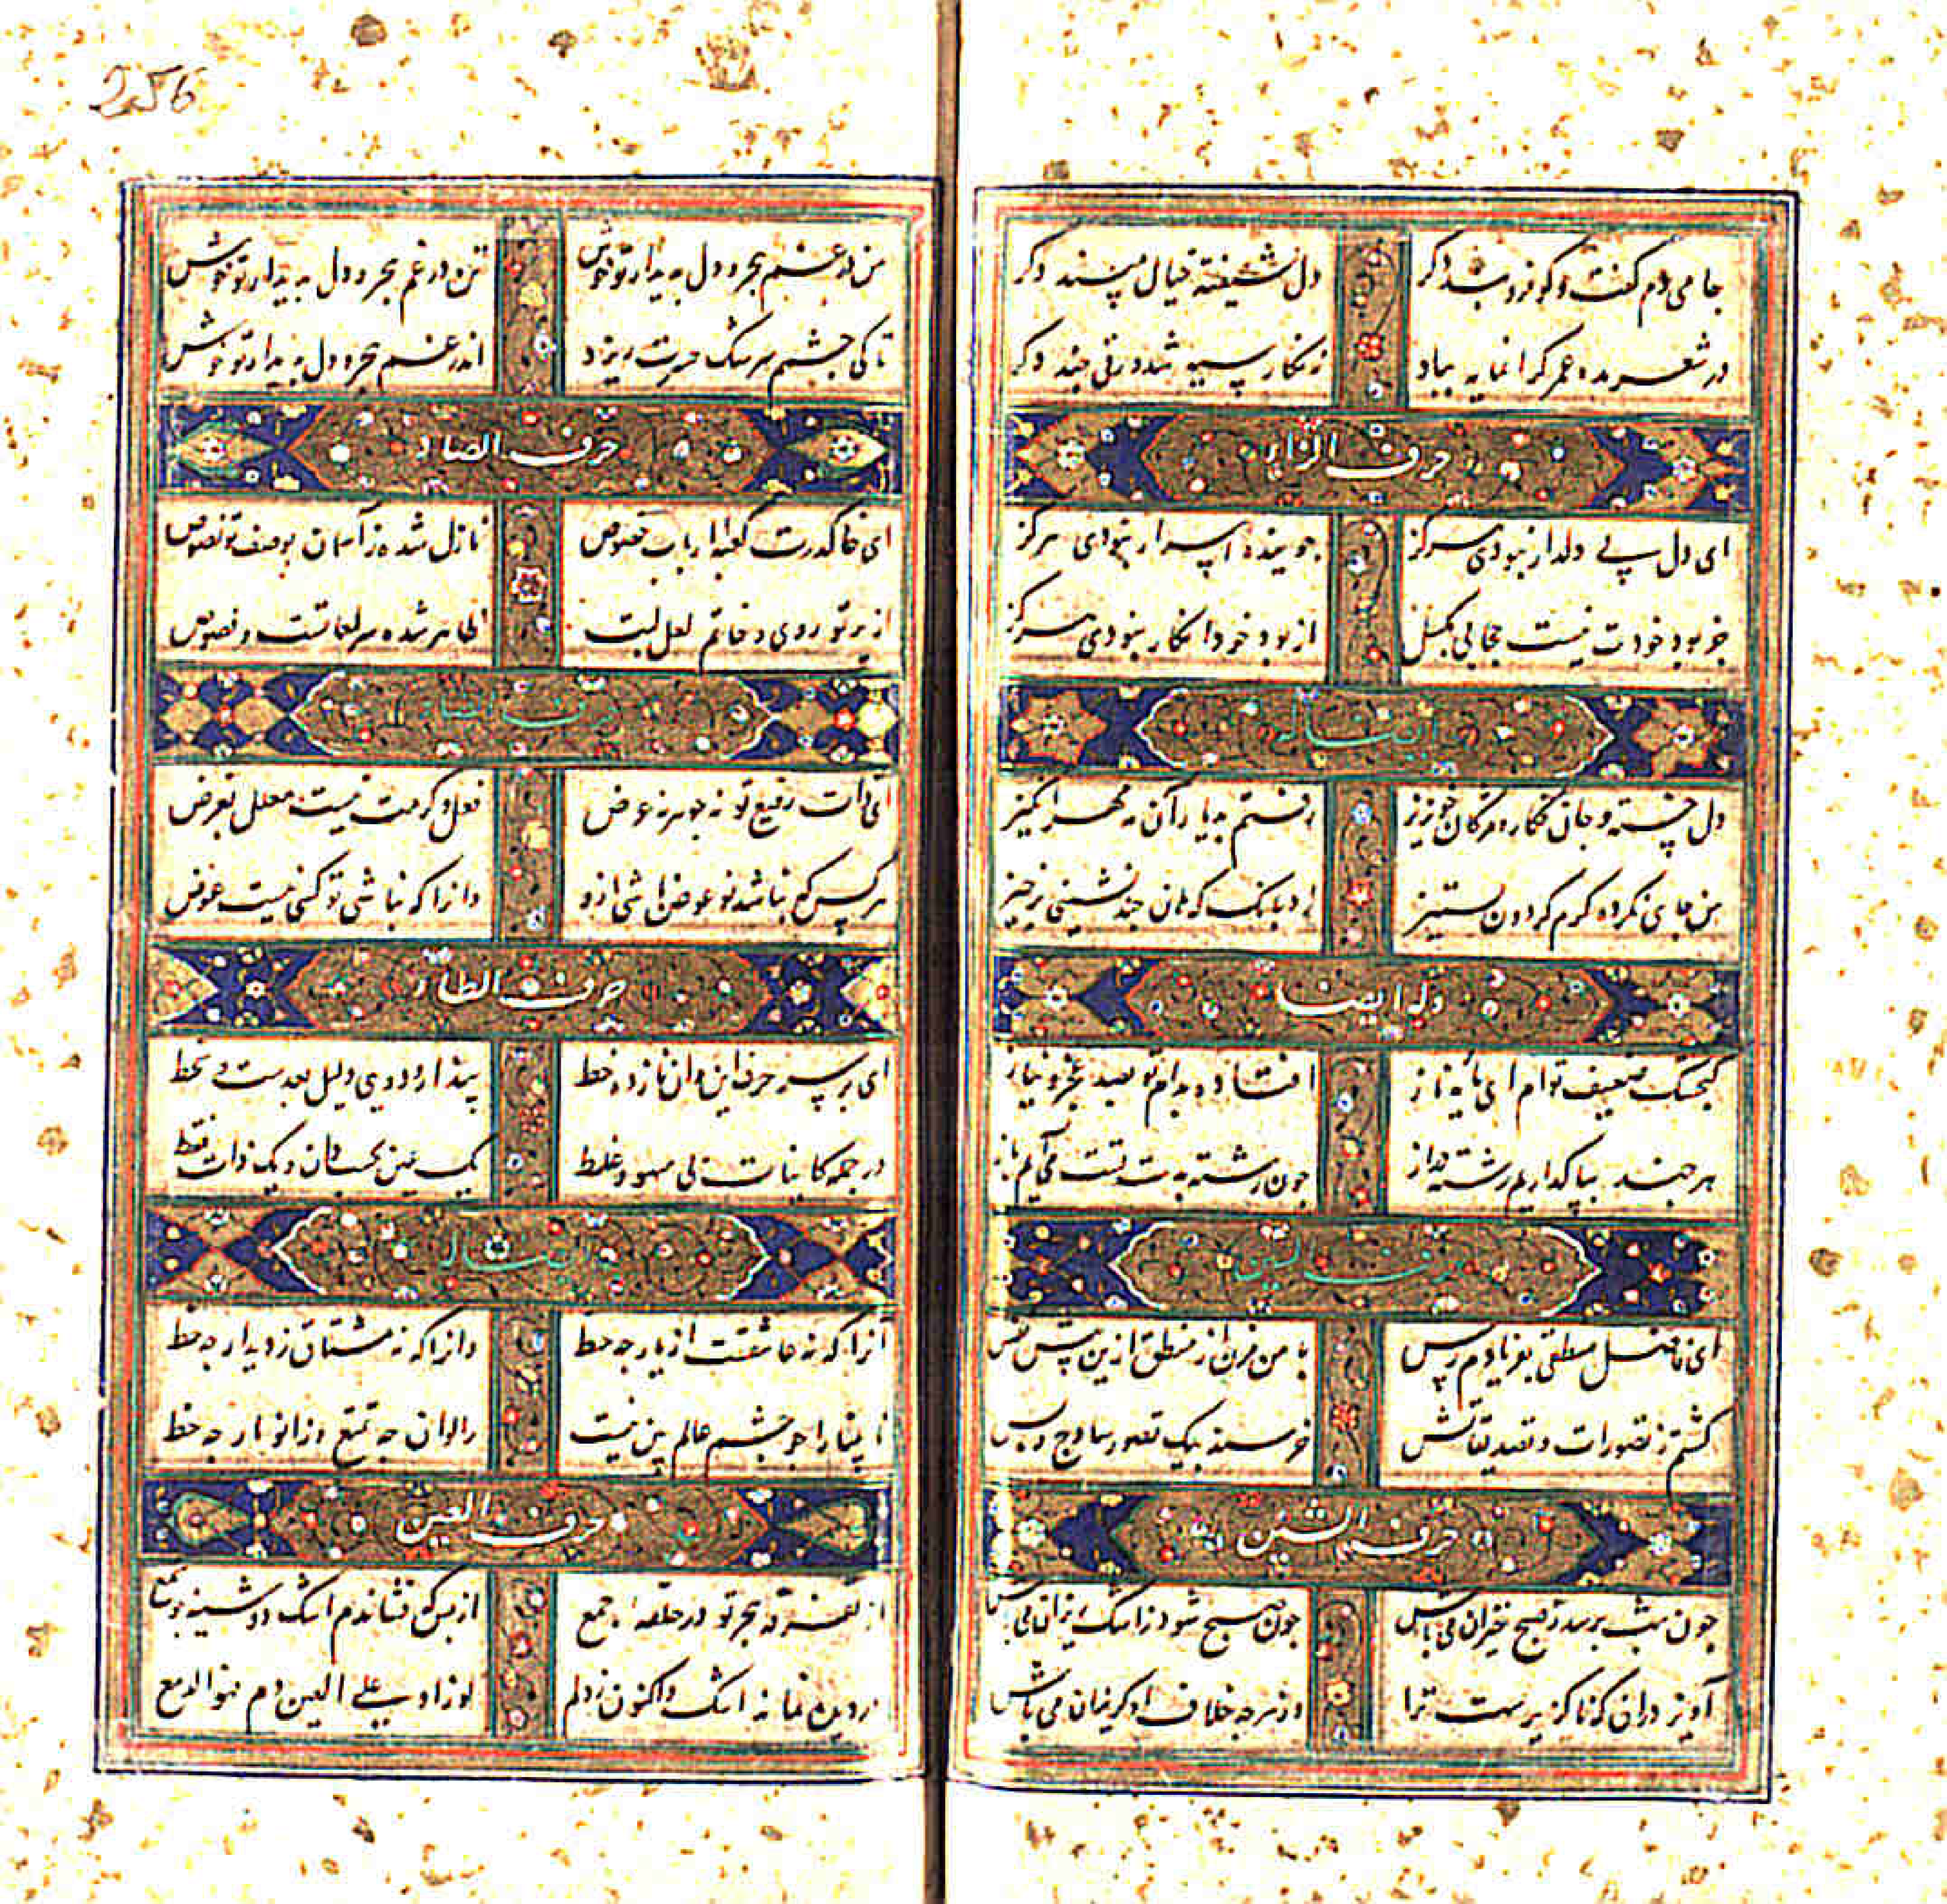 جامی دم گفت و گو فرو بند دگر دل شیفته خیال مپسند دگر
در شعر مده عمر گرانمایه بباد زنکار سیه شد ورقی چند دگر
حرف الزاء
ای دل پی دلدار نبودی هرگز جوینده اسرار نبودی هرگز
جز بود خودت نیست حجابی بکسل از بود خود انکار نبودی هرگز
ایضا له
دل خسته و جان فکار و مژگان خونریز رفتم بدیار آن مه مهرانگیز
من جای نکرده گرم گردون ستیز زد بانک که هان چند نشینی برخیز
وله ایضا
گنجشک ضعیف توام ای مایه ناز افتاده بدام تو بصد عجز و نیاز
هرچند بپا گذاریم رشته دراز چون رشته بدست تست می آیم باز
حرف السین
ای فاضل منطقی بفریادم رس با من مزن از منطق ازین پس نفس
گشتم ز تصورات و تصدیقاتش خرسند بیک تصور ساذج و بس
حرف الشین
چون شب برسد ز صبح خیزان می باش چون صبح شود ز اشک ریزان می باش
آویز در آن که ناگزیرست ترا وز هرچه خلاف او گریزان می باش
256
من در غم هجر و دل بدیدار تو خوش تن در غم هجر و دل بدیدار تو خوش
تا کی چشمم سرشک حسرت ریزد اندر غم هجر و دل بدیدار تو خوش
حرف الصاد
ای خاک درت کعبه ارباب خصوص نازل شده ز آسمان بوصف تو نصوص
از پرتو روی و خاتم لعل لبت ظاهر شده سر لمعاتست و فصوص
حرف الضاد
ای ذات رفیع تو نه جوهر نه عرض فضل و کرمت نیست معلل بغرض
هر کس که نباشد تو عوض باشی ازو و انرا که نباشی تو کسی نیست عوض
حرف الطاء
ای بر سر حرف این و آن نازده خط پندار دویی دلیل بعدست و سخط
در جمله کاینات بی سهو و غلط یک عین فحسب دان و یک ذات فقط
ایضا له
آنرا که نه عاشقست از یار چه حظ و انرا که نه مشتاق ز دیدار چه حظ
نابینا را چو چشم عالم بین نیست ز الوان چه تمتع و ز انوار چه حظ
حرف العین
از تفرقه هجر تو در حلقه جمع از بس که فشاندم اشک دوشینه چو شمع
در دیده نماند اشک و اکنون ز دلم لو زاد علی العین دم فهو الدمع